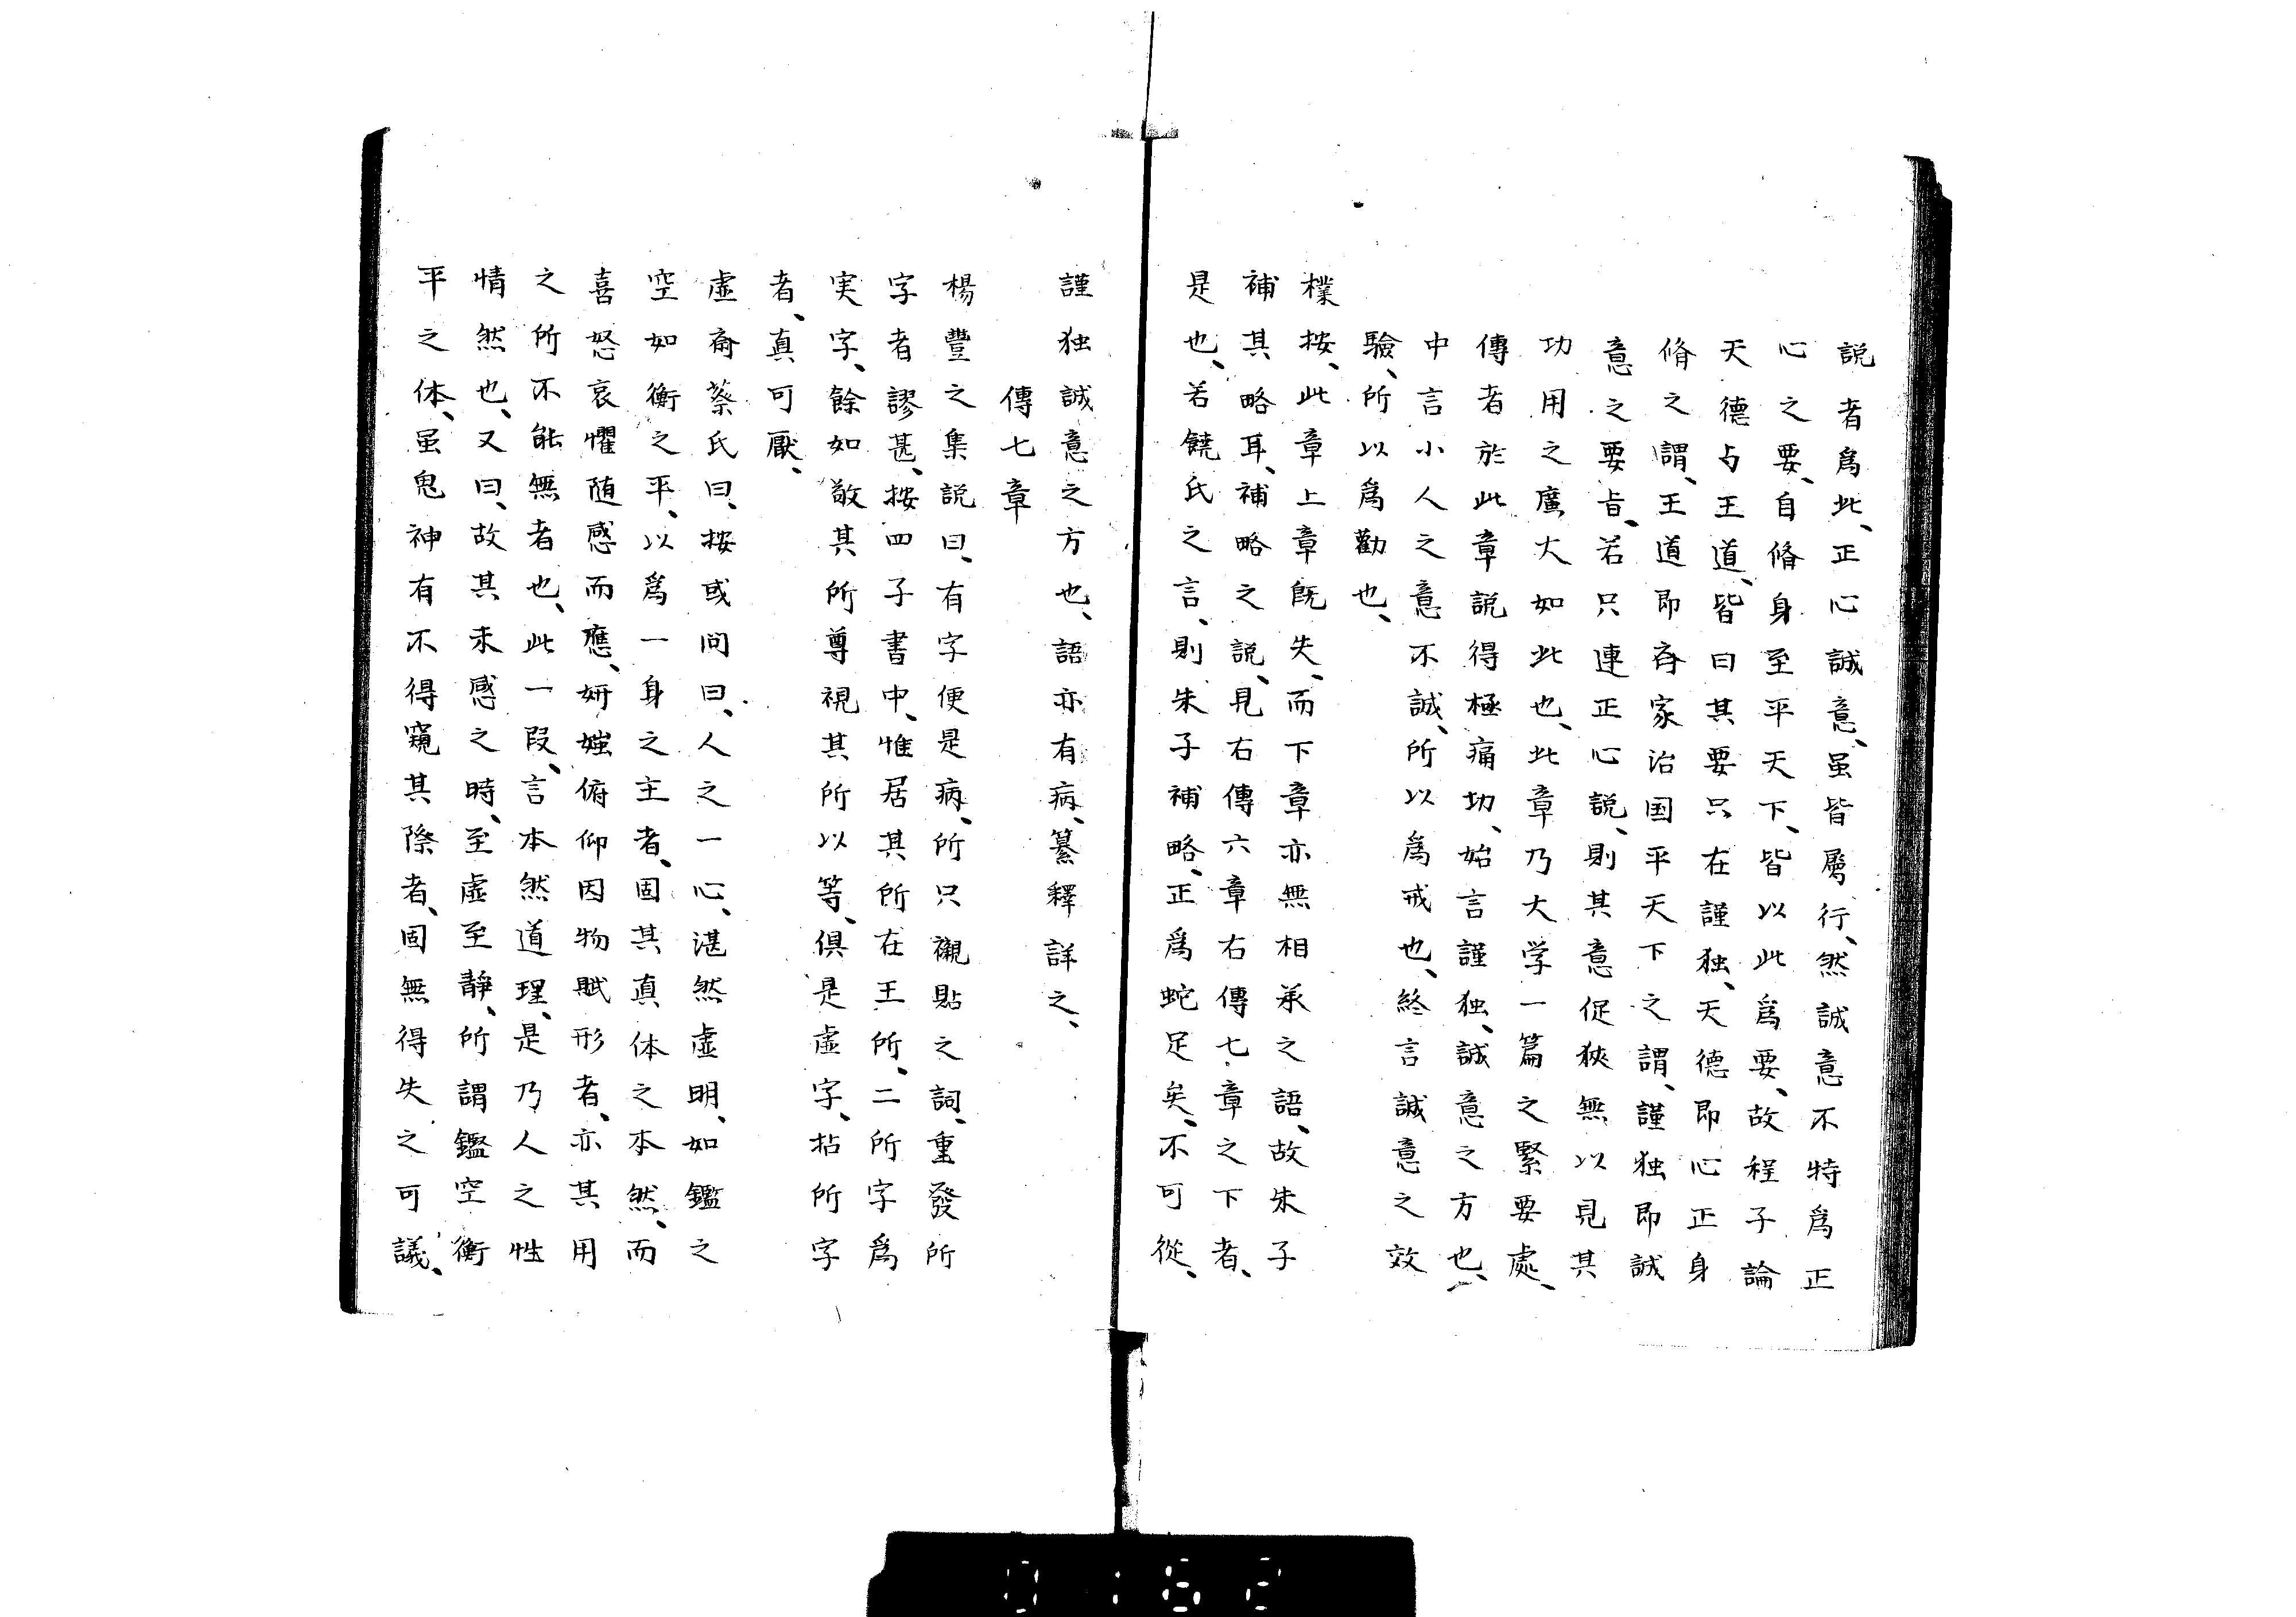 説者爲此、正心誠意、虽皆屬行、然誠意不特爲正
心之要、自脩身至平天下、皆以此爲要、故程子論
天德与王道、皆曰其要只在謹独、天德即心正身
脩之謂、王道即斉家治国平天下之謂、謹独即誠
意之要旨、若只連正心説、則其意促狹無以見其
功用之廣大如此也、此章乃大学一篇之緊要處、
傳者於此章説得極痛切、始言謹独、誠意之方也、
中言小人之意不誠、所以爲戒也、終言誠意之效
驗、所以爲勸也、
樸按、此章上章既失、而下章亦無相承之語、故朱子
補其略耳、補略之説、見右傳六章右傳七章之下者、
是也、若饒氏之言、則朱子補略、正爲蛇足矣、不可從、
謹独誠意之方也、語亦有病、纂釋詳之、
傳七章
楊豐之集説曰、有字便是病、所只襯貼之詞、重發所
字者謬甚、按四子書中、惟居其所在王所、二所字爲
実字、餘如敬其所尊視其所以等、俱是虛字、拈所字
者、真可厭、
虛斎蔡氏曰、按或问曰、人之一心、湛然虛明、如鑑之
空如衡之平、以爲一身之主者、固其真体之本然、而
喜怒哀懼随感而應、妍媸俯仰因物賦形者、亦其用
之所不能無者也、此一段、言本然道理、是乃人之性
情然也、又曰、故其未感之時、至虛至靜、所謂鑑空衡
平之体、虽鬼神有不得窺其際者、固無得失之可議、
0162